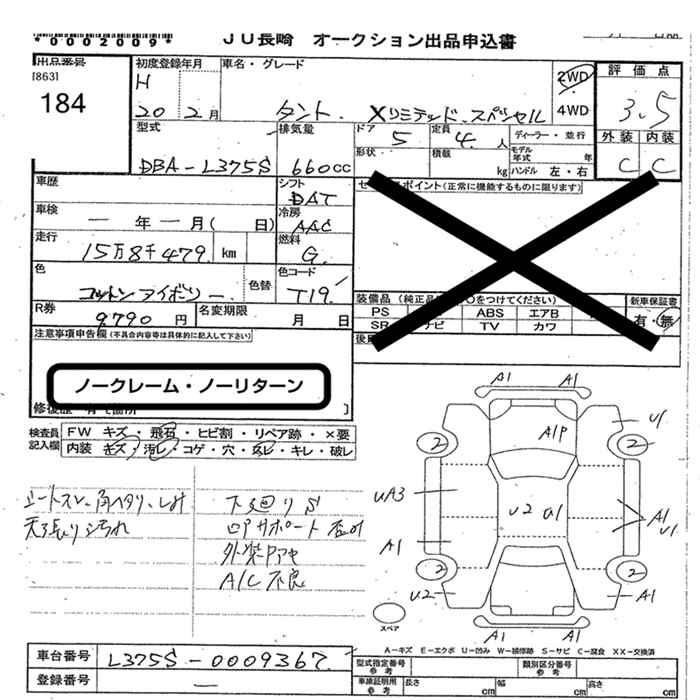 *0002009*
JU長崎 オークション出品申込書
出品番号
[863]
184
初度登録年月
H
20 2月
車名・グレード
タント Xリミテッド スペシャル
2WD
4WD
評価点
3.5
外装 内装
C C
型式
DBA-L375S
排気量
660cc
ドア
5
定員
4 人
ディーラー・並行
形状
積載
kg
モデル年式
年
ハンドル 左・右
車歴
シフト
DAT
車検
― 年 ― 月( 日)
冷房
AAC
走行
15万8千479 km
燃料
G
色
コットンアイボリー
色替
色コード
T19
R券
9790 円
名変期限
月 日
ポイント(正常に機能するものに限ります)
装備品(純正品 ○をつけてください)
新車保証書
PS ABS エアB
SR ナビ TV カワ
有・無
注意事項申告欄(不具合内容等は具体的に記入して下さい)
ノークレーム・ノーリターン
検査員記入欄
FW キズ・飛石・ヒビ割・リペア跡・×要
内装 キズ・汚レ・コゲ・穴・欠ヒ・キレ・破レ
天張り汚れ
下廻りS
外装Pアセ
A/C不良
A1 A1
A1P
U1
2 2
UA3
U2 U1
A1
U1
A1
2 2
U2 A1
A1 A1
スペア
A-キズ E-エクボ U-凹み W-補修跡 S-サビ C-腐食 XX-交換済
車台番号
L375S-0009367
登録番号
―
型式指定番号
参考
類別区分番号
参考
車検証明用
参考
長さ cm
幅 cm
高さ cm